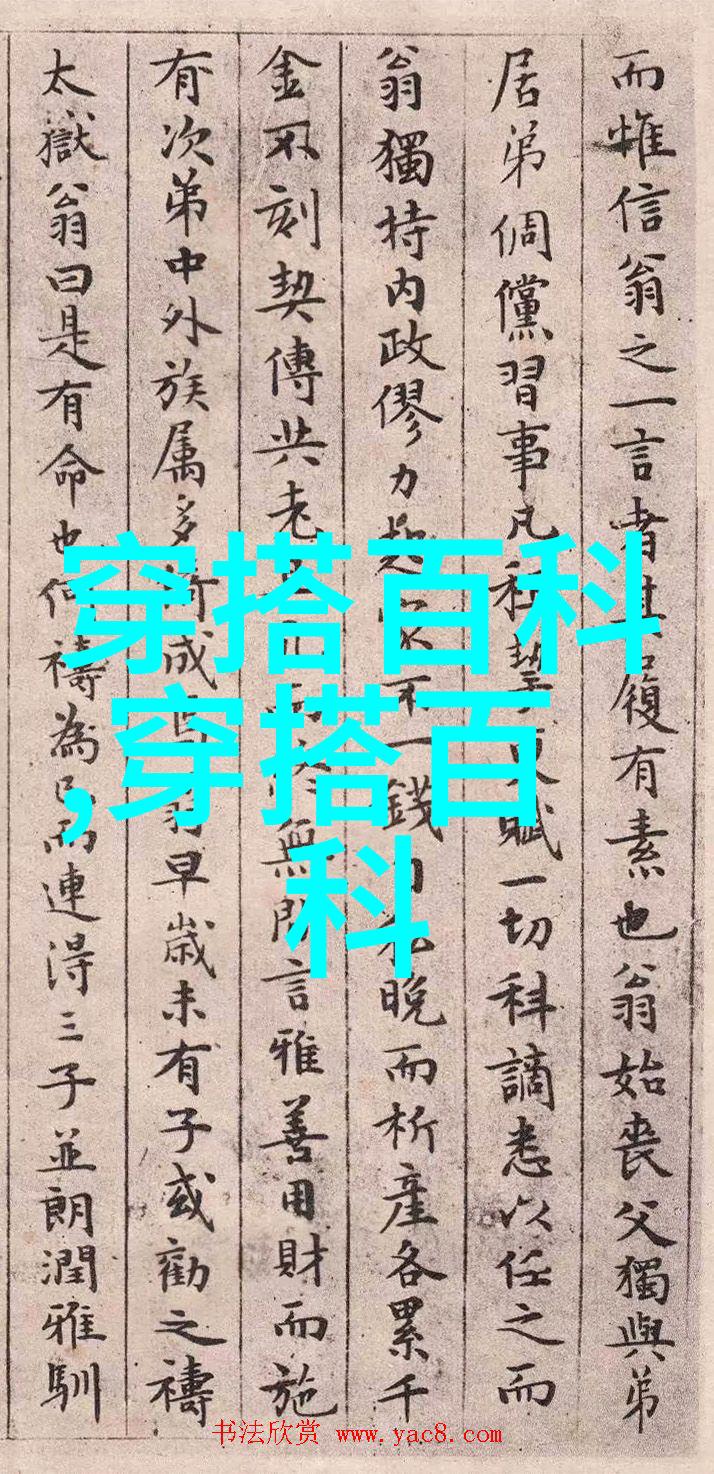 而惟信翁之一言者其履有素也翁始喪父獨與弟
居弟倜儻習事凡租更賦一切科謫悉以任之而
翁獨持内政僇力起不一錢晚而析產各累千
金不刻契傳共老無所言雅善用財而施
有次第中外族属多成早歲未有子或勸之禱
太嶽翁曰是有命也何禱為已而連得三子並朗潤雅馴
穿搭百科
,穿搭百
科
书法欣赏 www.yac8.com